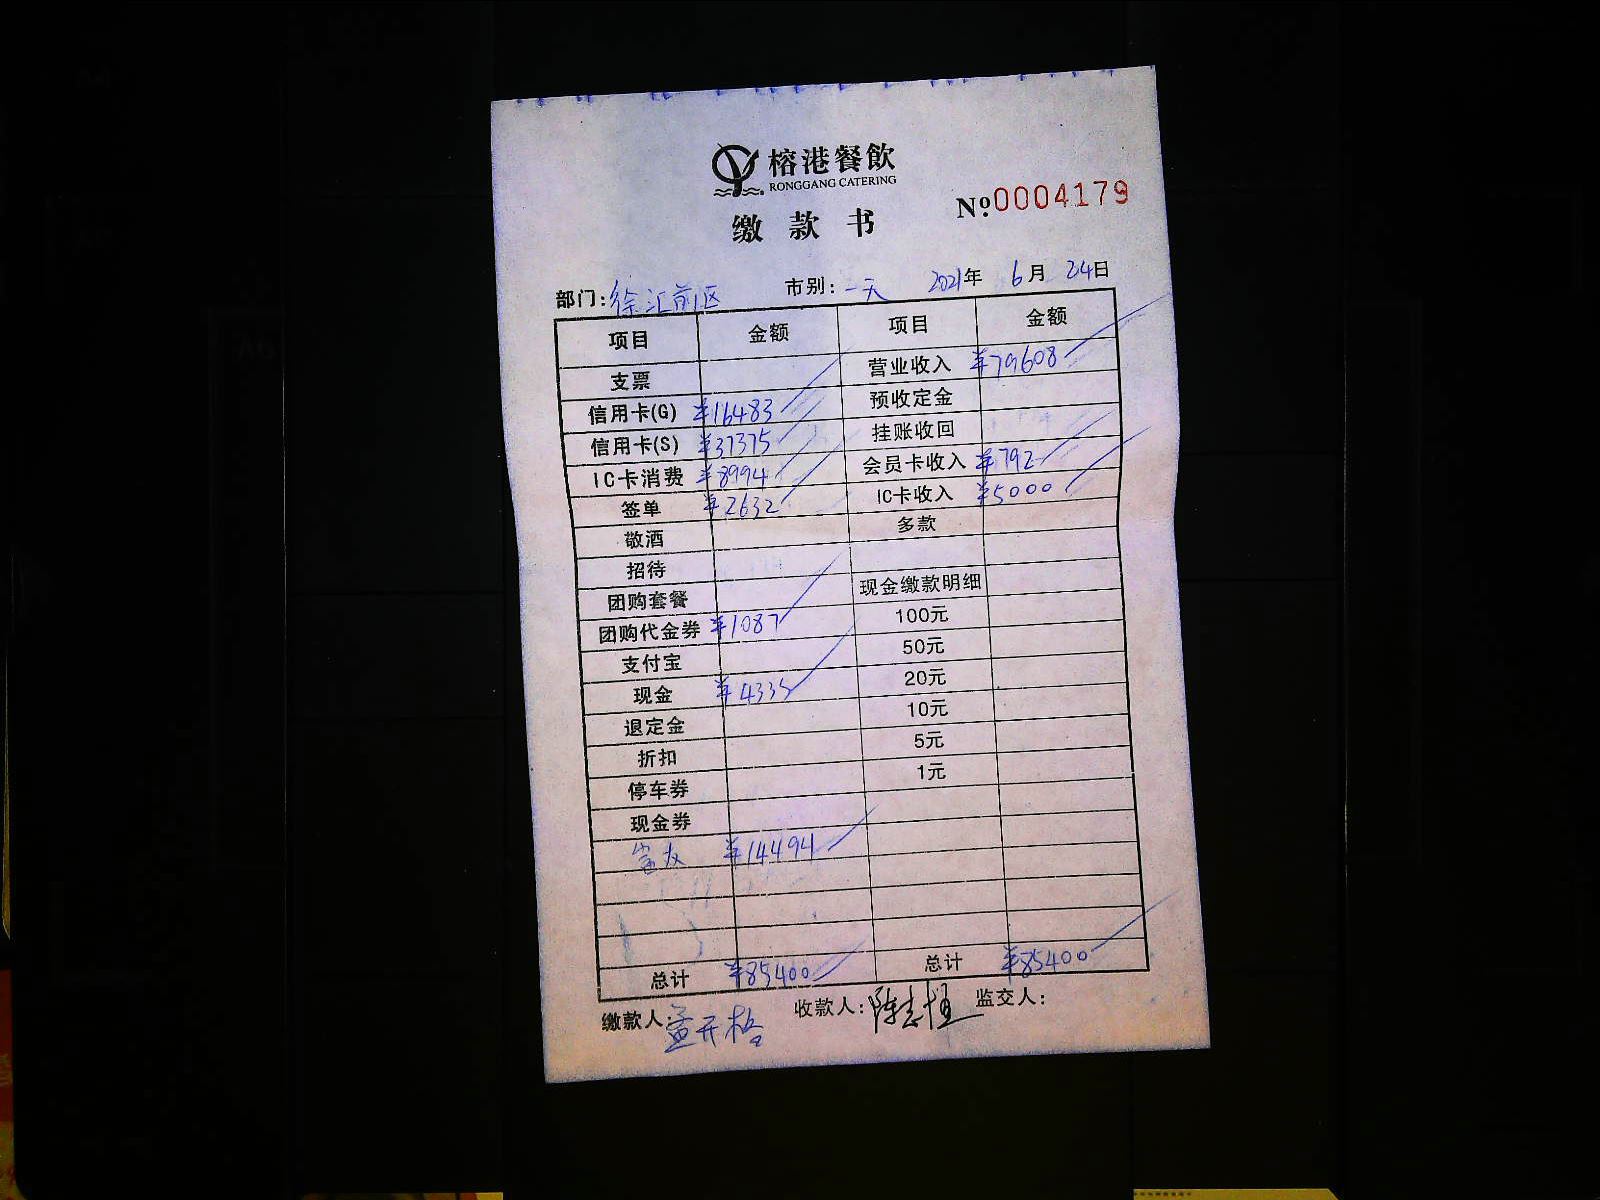 榕港餐飲
RONGGANG CATERING
缴款书 №0004179
部门:徐汇前区 市别:一天 2021年 6月 24日
项目 金额 项目 金额
支票 营业收入 ¥79608
信用卡(G) ¥16483 预收定金
信用卡(S) ¥37375 挂账收回
IC卡消费 ¥8994 会员卡收入 ¥792
签单 ¥2632 IC卡收入 ¥5000
敬酒 多款
招待
团购套餐 现金缴款明细
团购代金券 ¥1087 100元
支付宝 50元
现金 ¥4335 20元
退定金 10元
折扣 5元
停车券 1元
现金券
富友 ¥14494
总计 ¥85400 总计 ¥85400
缴款人:孟开格 收款人:陈志恒 监交人: